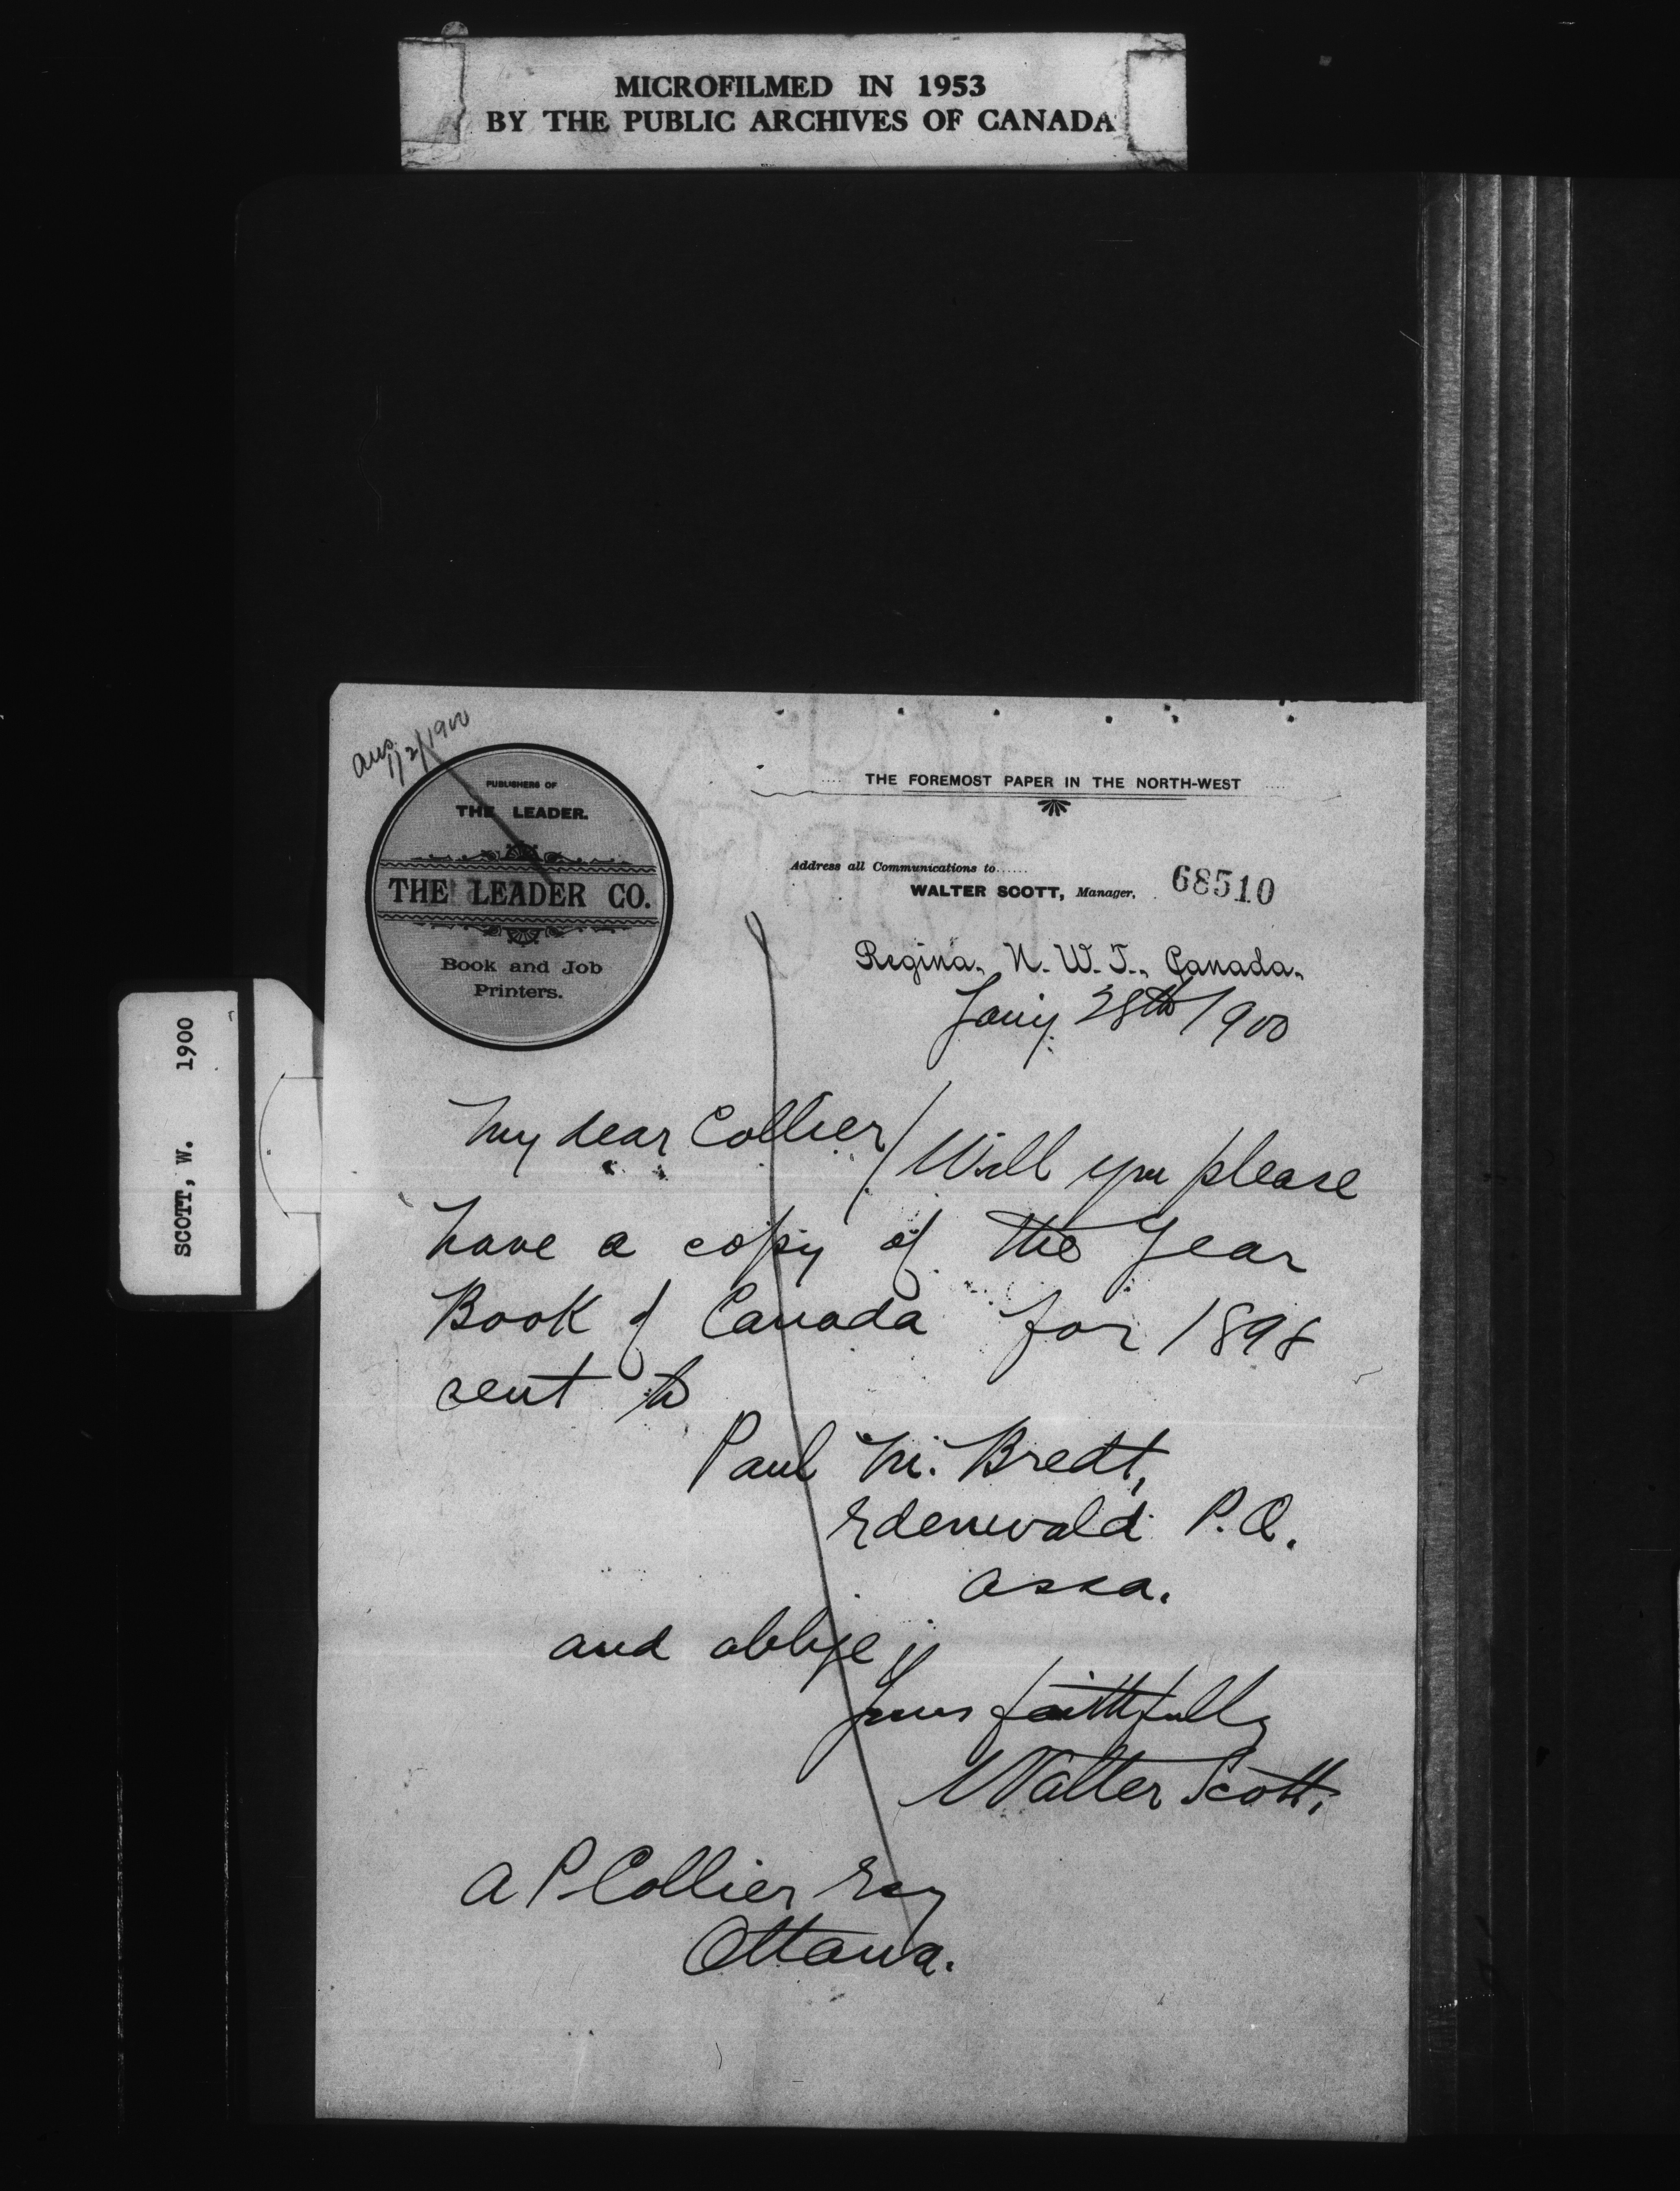 MICROFILMED IN 1953
BY THE PUBLIC ARCHIVES OF CANADA
SCOTT, W. 1900
Ans. 1/2/1900
PUBLISHERS OF
THE LEADER.
THE LEADER CO.
Book and Job
Printers.
THE FOREMOST PAPER IN THE NORTH-WEST
Address all Communications to......
WALTER SCOTT, Manager.
68510
Regina, N. W. T., Canada,
Jany. 28th 1900
My dear Collier / Will you please
have a copy of the Year
Book of Canada for 1898
sent to
Paul M. Bredt,
Edenwald P.O.
Assa.
and oblige
Yours faithfully
Walter Scott.
A P Collier Esq
Ottawa.